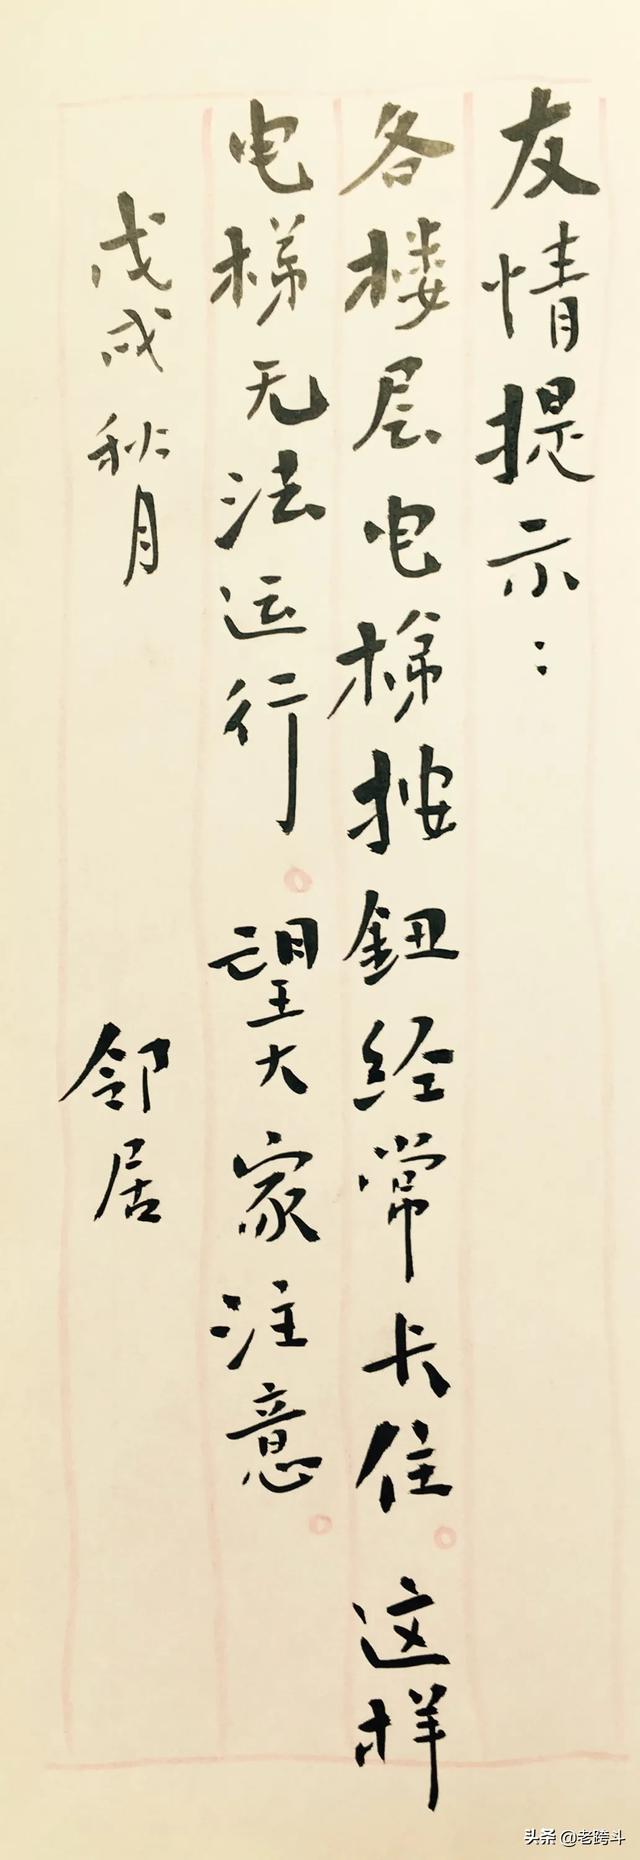 友情提示：
各楼层电梯按鈕经常卡住。这样
电梯无法运行。望大家注意。
戊戌秋月 邻居
头条 @老跨斗